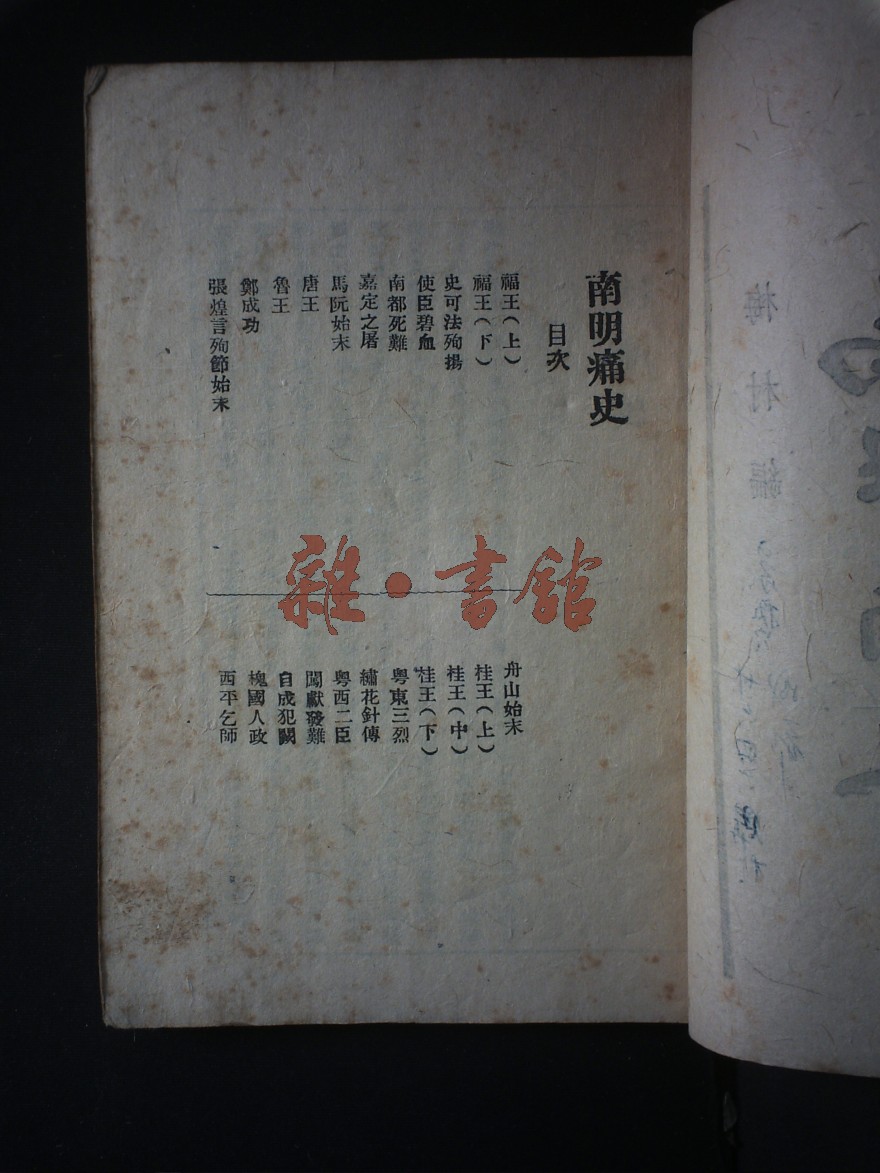 南明痛史
目次
福王(上)
福王(下)
史可法殉揚
使臣碧血
南都死難
嘉定之屠
馬阮始末
唐王
魯王
鄭成功
張煌言殉節始末
舟山始末
桂王(上)
桂王(中)
桂王(下)
粵東三烈
繡花針傳
粵西二臣
闖獻發難
自成犯闕
槐國人政
西平乞師
雜·書館
梅村編